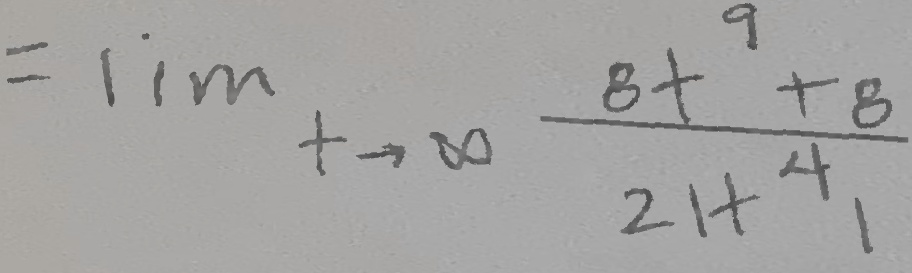 = lim t→∞ (8t^9 + 8)/(21t^4 1)